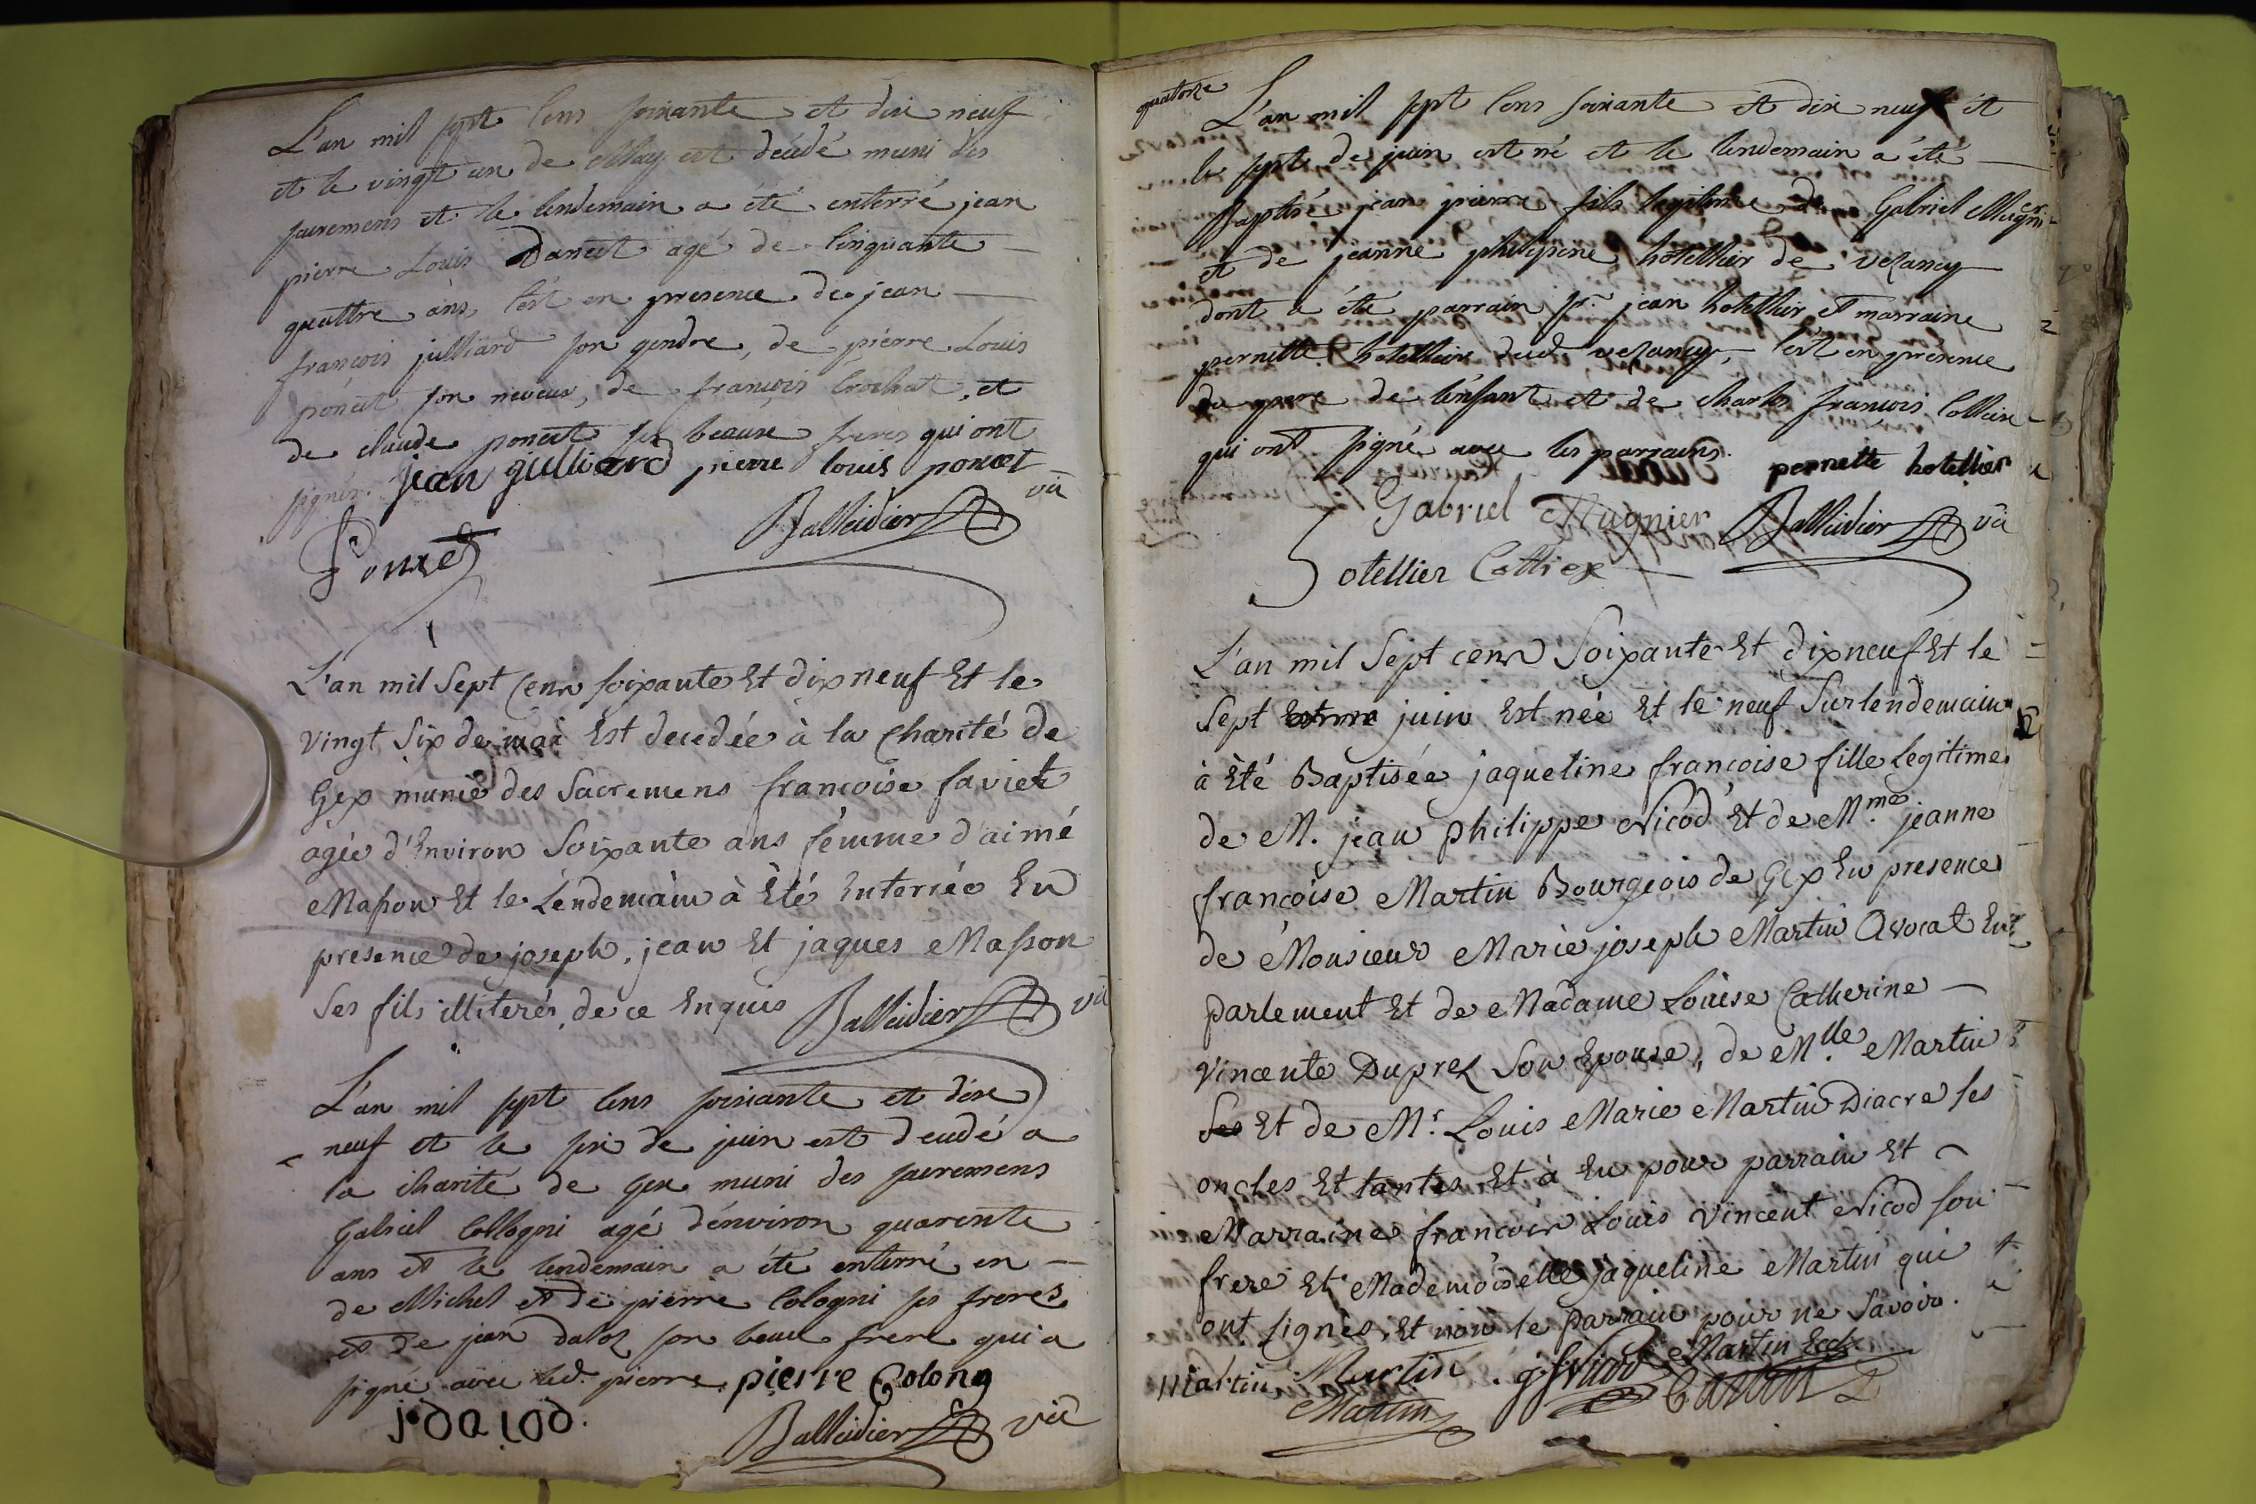 L'an mil sept cens soixante et dix neuf
et le vingt un de May est décédé muni des
sacremens et le lendemain a été enterré jean
pierre Louis Dancet agé de cinquante
quattre ans, c'est en presence de jean
françois julliard son gendre, de pierre Louis
poncet son neveux, de françois Crochat, et
de claude poncet ses beaux freres qui ont
signés. jean julliard pierre louis poncet
Balleidier vic
Poncet
L'an mil Sept Cens soixante Et dix neuf Et le
vingt Six de mai Est decedée à la Charité de
Gex munie des Sacremens françoise faviet
agée d'Environ Soixante ans fémme d'aimé
Masson Et le Léndemain à Été Enterrée En
présence de joseph, jean Et jaques Masson
Ses fils illiterés, de ce Enquis Balleidier vic
L'an mil sept cens soixante et dix
neuf et le six de juin est decudé a
la charité de Gex muni des sacremens
Gabriel Collogni agé d'environ quarente
ans et le lendemain a été enterré en
de Michel et de pierre Cologni ses freres
et de jean daloz son beau frere qui a
signé avec led. pierre. pierre Colony
j. dalod.
Balleidier vic
quatorze
L'an mil sept cens soixante et dix neuf et
le sept de juin est né et le lendemain a été
Baptisé jean pierre fils legitime de Gabriel Mugnier
et de jeanne philipine hotellier de vezancy
dont a été parrain sr. jean hotellier et marraine
pernette hotelliere dud. vezancy, c'est en presence
du pere de l'enfant et de charles françois Collier
qui ont signé avec les parrains. pernette hotellier
Gabriel Mugnier Balleidier vic
otellier Collier
L'an mil Sept cens Soixante Et dix neuf Et le
Sept juin Est née Et le neuf Surlendemain
à Été Baptisée jaqueline françoise fille legitime
de M. jean philippe Nicod Et de Mme. jeanne
francoise Martin Bourgeois de Gex En presence
de Monsieur Marie joseph Martin Avocat En
parlement Et de Madame Louise Catherine
vincente Duprez Son Epouse, de Mlle. Martin
Ses Et de Mr. Louis Marie Martin Diacre ses
oncles Et tantes Et à Eu pour parrain Et
Marraine francois Louis vincent Nicod Son
frere Et Mademoiselle jaqueline Martin qui
ont signés, Et non le parrain pour ne Savoir.
Martin Martin Martin Eccl.
Martin